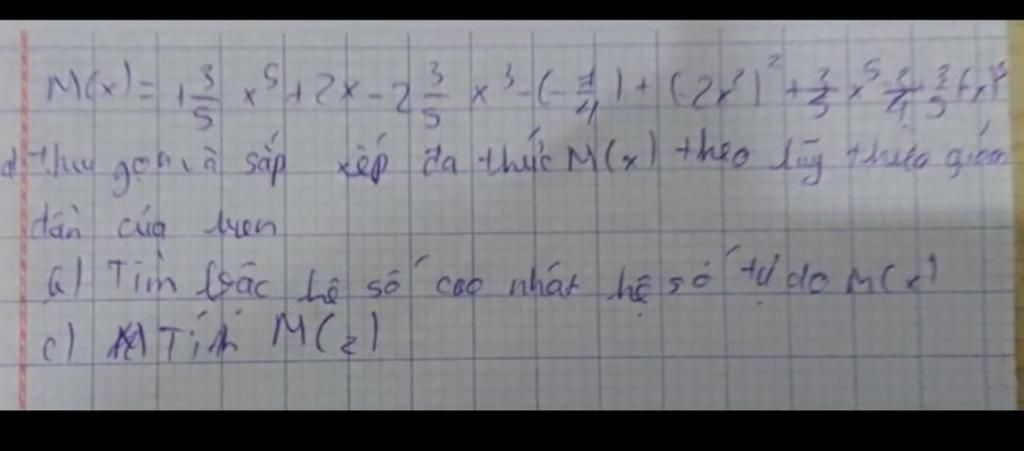 M(x) = 1 3/5 x^5 + 2x - 2 3/5 x^3 - (-1/4) + (-2x^2)^2 + 3/5 x^5
a) thu gọn và sắp xếp đa thức M(x) theo lũy giảm
dần của
b) Tìm bậc hệ số cao nhất hệ số tự do M(x)
c) Tính M(2)